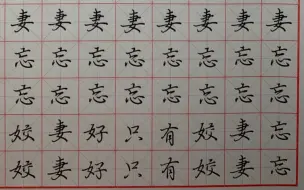 妻妻妻妻妻妻妻妻
忘忘忘忘忘忘忘忘
忘忘忘忘忘忘忘忘
姣妻好只有姣妻忘
姣妻好只有姣妻忘